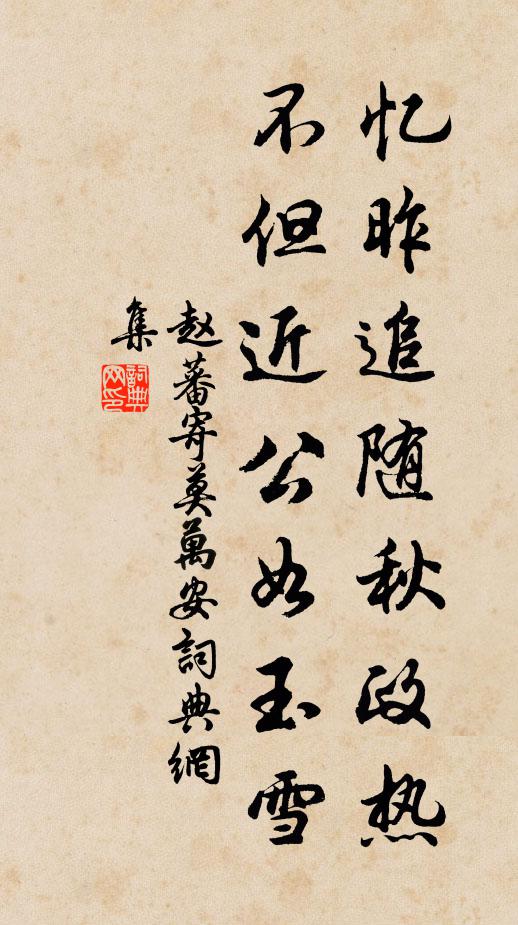 忆昨追随秋政热
不但近公如玉雪
赵蕃寄莫萬安詞典網
集
詞典
网印